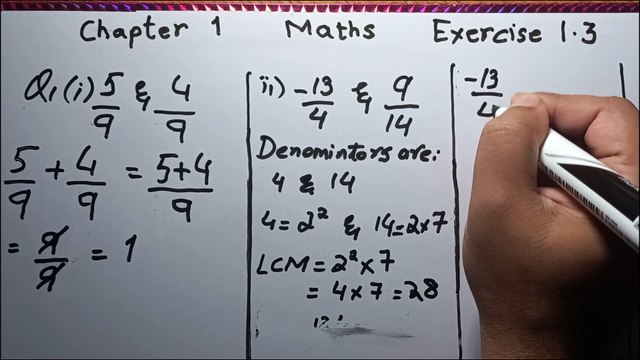 Chapter 1 Maths Exercise 1.3
Q1(i) 5/9 & 4/9
5/9 + 4/9 = 5+4/9
= 9/9 = 1
ii) -13/4 & 9/14
Denomintors are:
4 & 14
4=2² & 14=2×7
LCM = 2²×7
= 4×7 = 28
-13/4